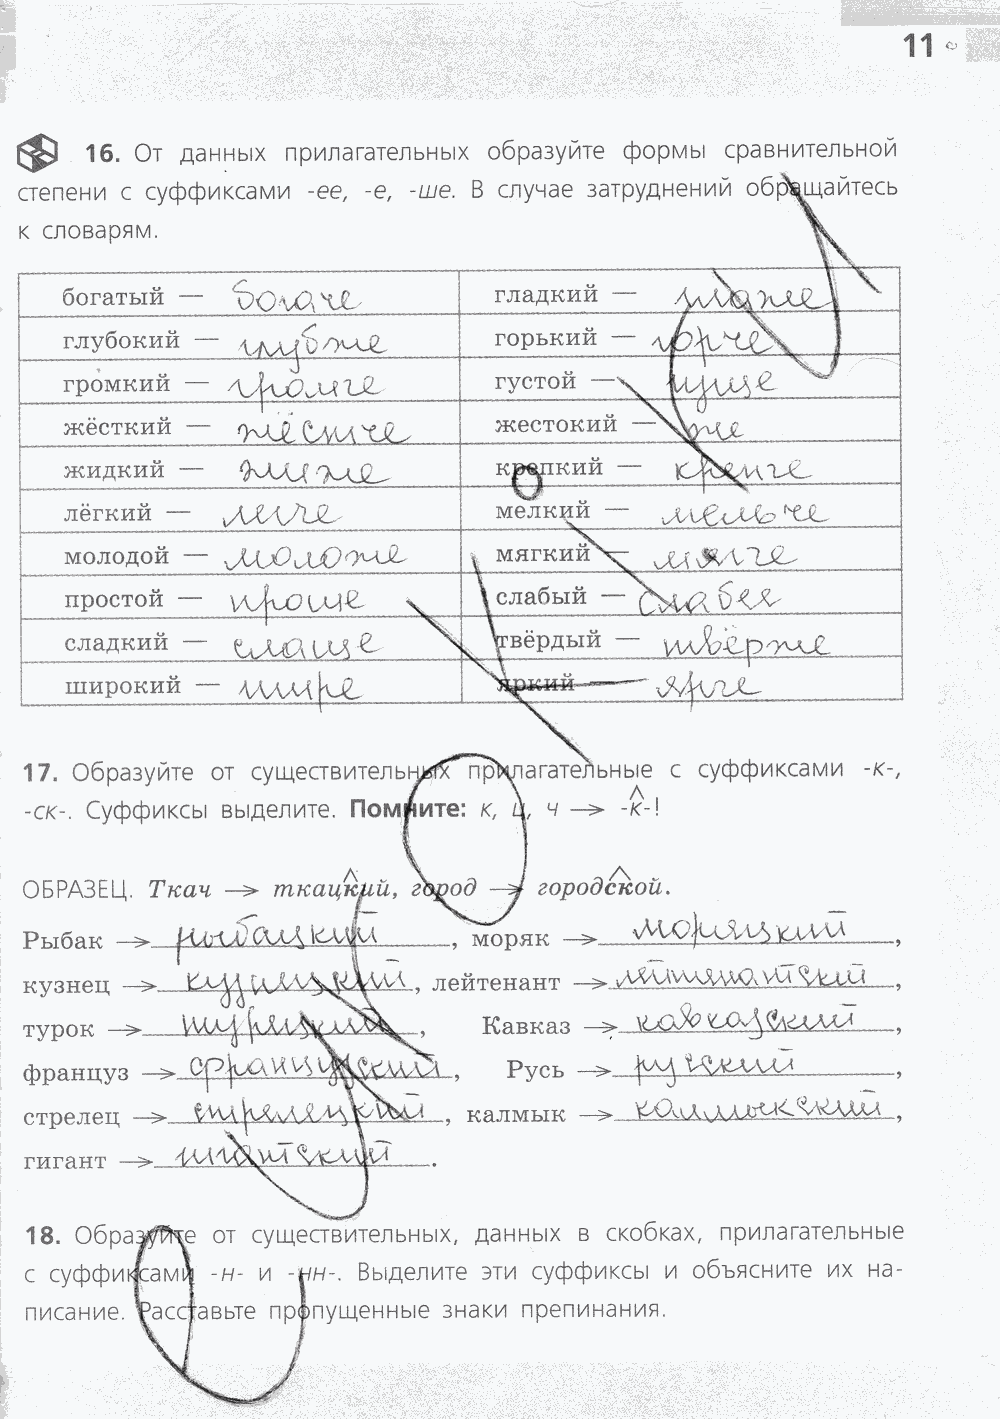 11
16. От данных прилагательных образуйте формы сравнительной
степени с суффиксами -ее, -е, -ше. В случае затруднений обращайтесь
к словарям.
богатый — богаче гладкий — глаже
глубокий — глубже горький — горче
громкий — громче густой — гуще
жёсткий — жёстче жестокий — же
жидкий — жиже крепкий — крепче
лёгкий — легче мелкий — мельче
молодой — моложе мягкий — мягче
простой — проще слабый — слабее
сладкий — слаще твёрдый — твёрже
широкий — шире яркий — ярче
17. Образуйте от существительных прилагательные с суффиксами -к-,
-ск-. Суффиксы выделите. Помните: к, ц, ч → -к-!
ОБРАЗЕЦ. Ткач → ткацкий, город → городской.
Рыбак → рыбацкий, моряк → моряцкий,
кузнец → кузнецкий, лейтенант → лейтенантский,
турок → турецкий, Кавказ → кавказский,
француз → французский, Русь → русский,
стрелец → стрелецкий, калмык → калмыкский,
гигант → гигантский.
18. Образуйте от существительных, данных в скобках, прилагательные
с суффиксами -н- и -нн-. Выделите эти суффиксы и объясните их на-
писание. Расставьте пропущенные знаки препинания.